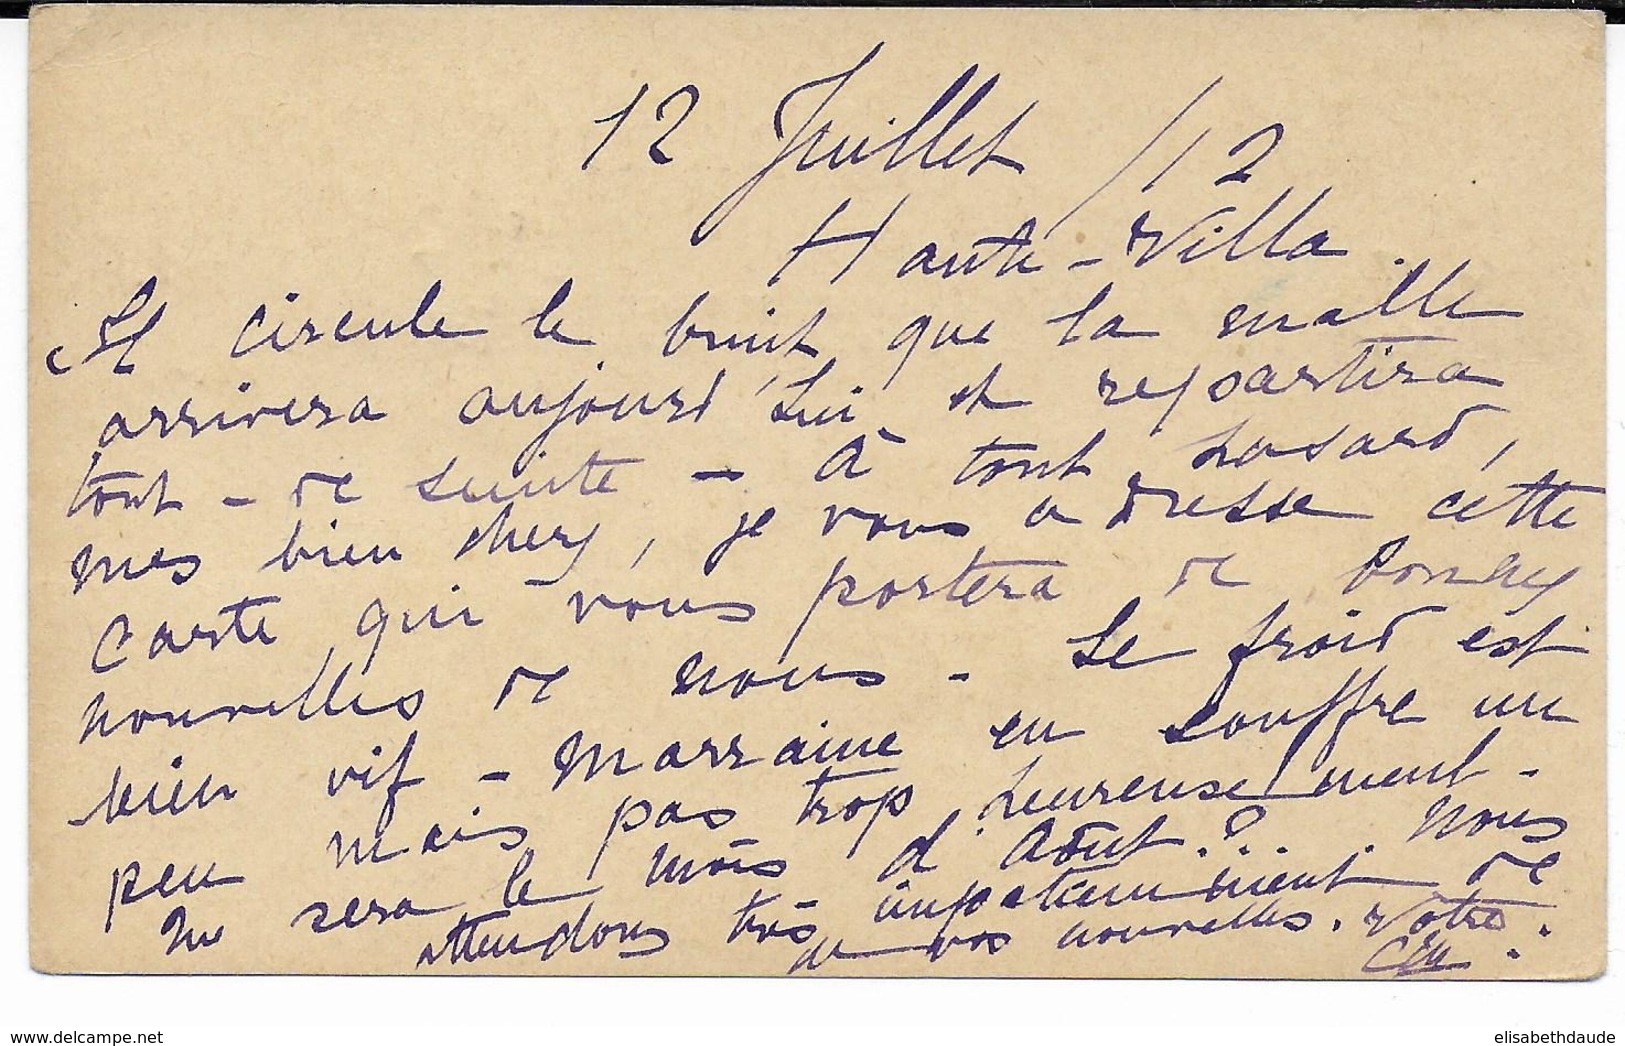 12 Juillet /12
Haute-Villa.
Il circule le bruit que la malle
arrivera aujourd'hui et repartira
tout-de suite - à tout hasard,
mes bien chers, je vous adresse cette
carte qui vous portera de bonnes
nouvelles de nous - Le froid est
bien vif - Marraine en souffre un
peu mais pas trop heureusement -
sera le mois d'Août ?... Nous
attendons très impatiemment de
de vos nouvelles. Votre
www.delcampe.net
elisabethdaude